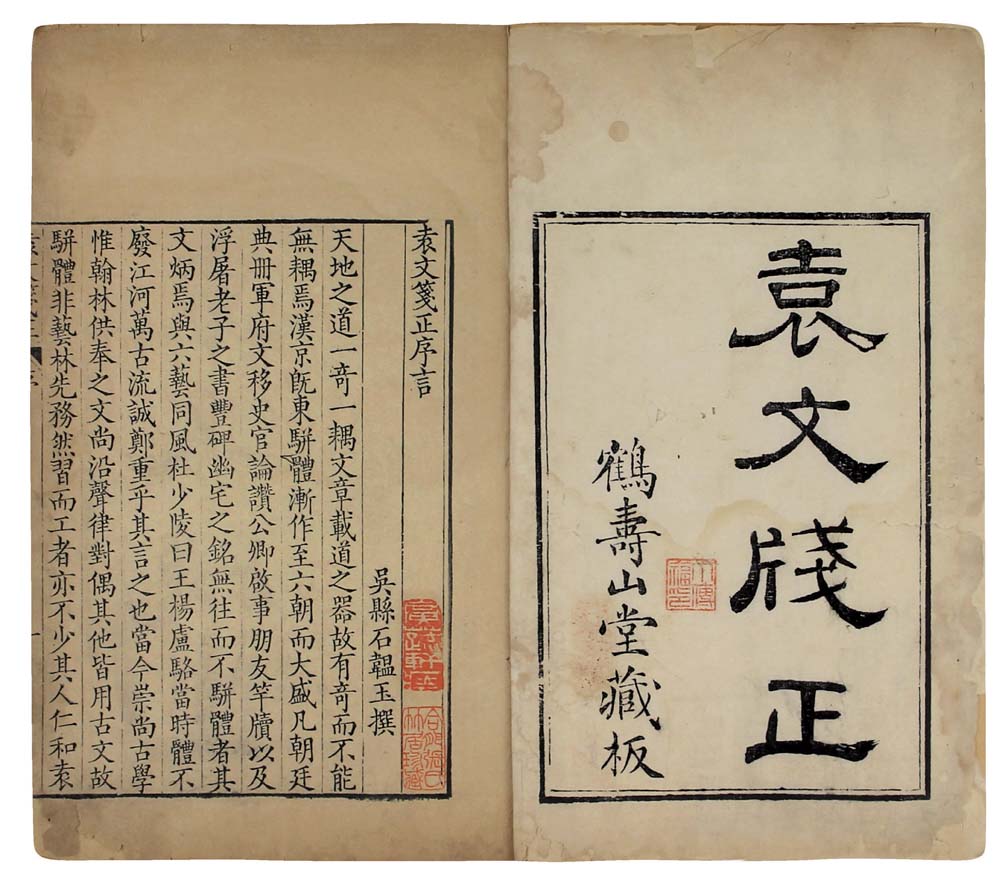 袁文牋正
鶴壽山堂藏板
袁文箋正序言
吳縣石韞玉撰
天地之道一奇一耦文章載道之器故有奇而不能
無耦焉漢京旣東駢體漸作至六朝而大盛凡朝廷
典冊軍府文移史官論讚公卿啟事朋友竿牘以及
浮屠老子之書豐碑幽宅之銘無往而不駢體者其
文炳焉與六藝同風杜少陵曰王楊盧駱當時體不
廢江河萬古流誠鄭重乎其言之也當今崇尚古學
惟翰林供奉之文尚沿聲律對偶其他皆用古文故
駢體非藝林先務然習而工者亦不少其人仁和袁